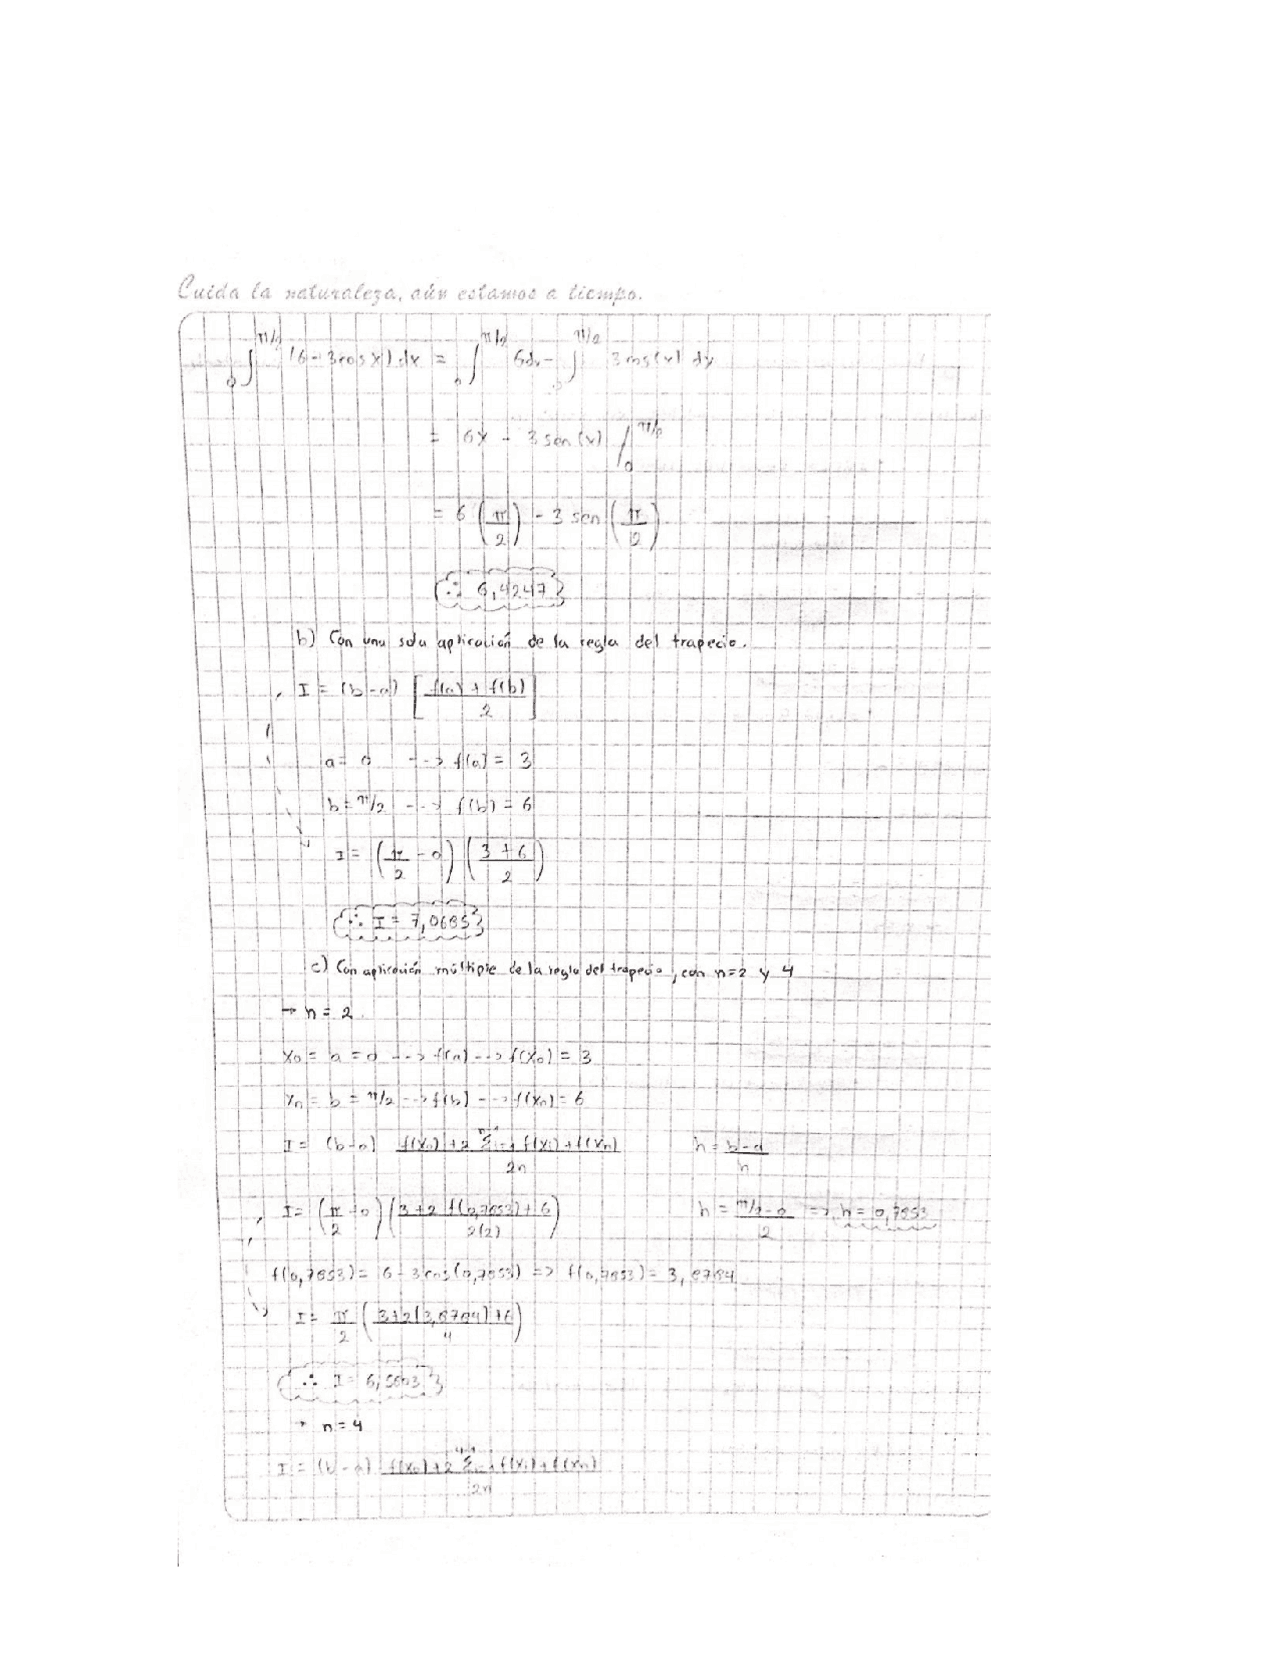 Cuida la naturaleza, aún estamos a tiempo.
∫₀^π/2 (6 - 3cos x) dx = ∫₀^π/2 6dx - ∫₀^π/2 3cos(x) dx
= 6x - 3 sen(x) /₀^π/2
= 6 (π/2) - 3 sen (π/2)
∴ 6,4247
b) Con una sola aplicación de la regla del trapecio.
I = (b-a) [f(a) + f(b) / 2]
a = 0 --> f(a) = 3
b = π/2 --> f(b) = 6
I = (π/2 - 0) (3 + 6 / 2)
∴ I = 7,0685
c) Con aplicación múltiple de la regla del trapecio, con n=2 y 4
→ n = 2
x₀ = a = 0 --> f(a) --> f(x₀) = 3
xₙ = b = π/2 --> f(b) --> f(xₙ) = 6
I = (b-a) f(x₀) + 2 Σ f(xi) + f(xₙ) / 2n h = b-a / n
I = (π/2 - 0) (3 + 2 f(0,7853) + 6 / 2(2)) h = π/2 - 0 / 2 => h = 0,7853
f(0,7853) = 6 - 3cos(0,7853) => f(0,7853) = 3,8784
I = π/2 (3+2(3,8784)+6 / 4)
∴ I =
→ n = 4
I = (b-a) f(x₀) + 2 Σ f(xi) + f(xₙ) / 2n